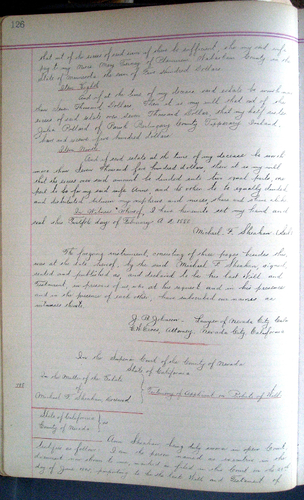 126
that out of the excess of said sum of
my said wife
pay to my niece Mary
County in the
State of Minnesota, the sum of Five Hundred Dollars.
Item Eighth
And if at the time of my decease said estate be worth more
than Two Thousand Dollars, then it is my will that out of the
excess of said estate over Two Thousand Dollars, that my
wife
Julia
County Tipperary Ireland,
hundred dollars.
Item Ninth
And if said estate at the time of my decease be worth
more than Two Thousand five hundred Dollars, then it is my will
that the excess over said amount be divided into two equal parts, one
part to go to my said wife Anne, and the other to be equally divided
and distributed between my nephews and nieces, share and share alike.
In Witness Whereof, I have hereunto set my hand and
seal this Twelfth day of February A.D. 1881.
Michael F. Sheahan (Seal)
The foregoing instrument, consisting of three pages besides this,
was at the date hereof, by the said Michael F. Sheahan, signed,
sealed and published as, and declared to be his last Will and
Testament, in presence of us, who at his request and in his presence
and in the presence of each other, have subscribed our names as
witnesses thereto.
J. A. Johnson, Lawyer of Nevada City Cala
Attorney, Nevada City, California
In the Superior Court of the County of Nevada
State of California
In the Matter of the Estate
of
Michael F. Sheahan deceased
Testimony of Applicant on Probate of Will
State of California
County of Nevada
ss
Anne Sheahan being duly sworn in open Court
testifies as follows: I am the person named as executrix in the
document
marked as filed in this Court on the
day of June 1881, purporting to be the last Will and Testament of